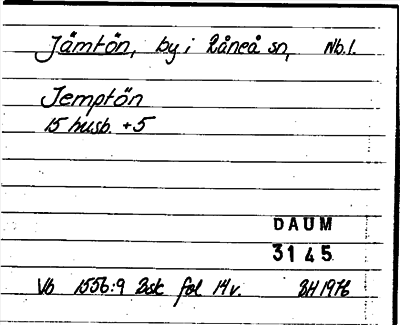 Jämtön, by i Råneå sn, Nb.l.
Jemptön
15 husb. + 5
DAUM
3145
Vb 1556:9 Bsk fol 14v. BH 1976